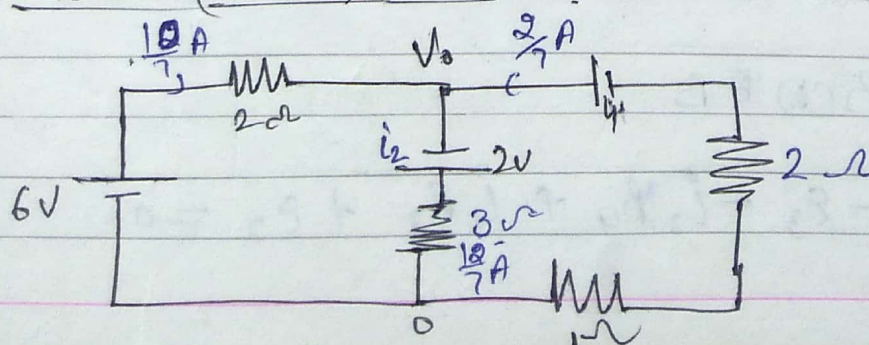 10/7 A
V₀
2/7 A
2Ω
i₂
2V
4V
2 Ω
6V
3Ω
12/7 A
0
1Ω